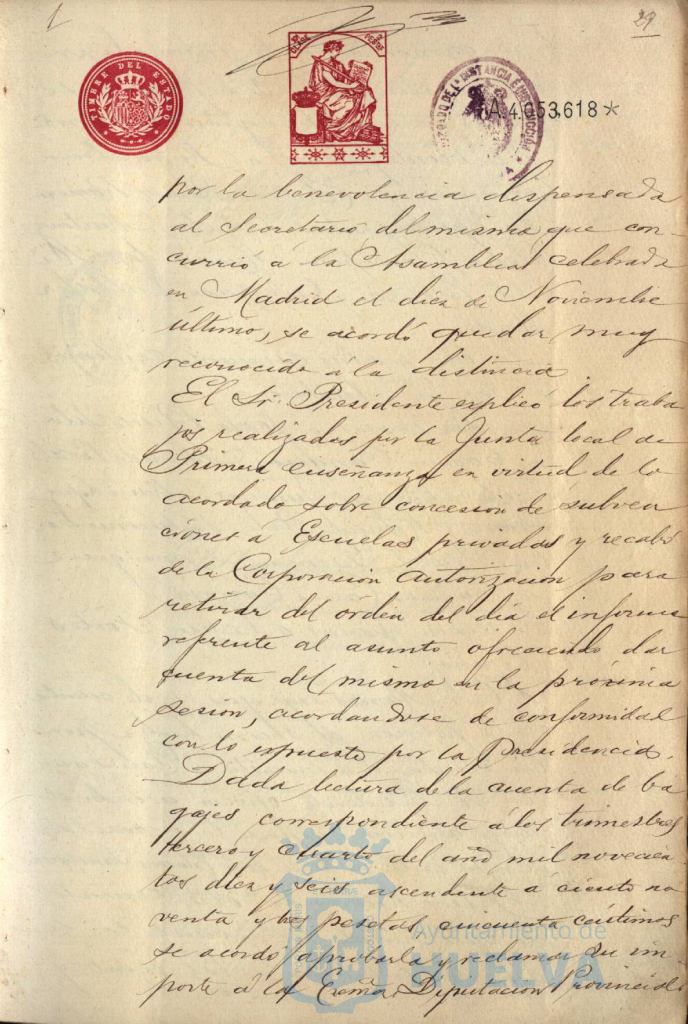 29
TIMBRE DEL ESTADO
JUZGADO DE 1ª INSTANCIA E INSTRUCCIÓN
A.4,053,618*
por la benevolencia dispensada
al Secretario del mismo que con-
currió á la Asamblea celebrada
en Madrid el diez de Noviembre
último, se acordó quedar muy
reconocida á la distincia.
El Sr. Presidente explicó los traba
jos realizados por la Junta local de
Primera enseñanza en virtud de lo
acordado sobre concesión de subven
ciones á Escuelas privadas y recabó
de la Corporación autorización para
retirar del órden del dia el informe
referente al asunto ofreciendo dar
cuenta del mismo en la próxima
sesión, acordandose de conformidad
con lo expuesto por la Presidencia.
Dada lectura de la cuenta de ba
gajes correspondiente á los trimestres
tercero y cuarto del año mil novecien
tos diez y seis ascendente á ciento no
venta y tres pesetas cincuenta céntimos
se acordó aprobarla y reclamar su im
porte á la Excma. Diputación Provincial
Ayuntamiento de
HUELVA